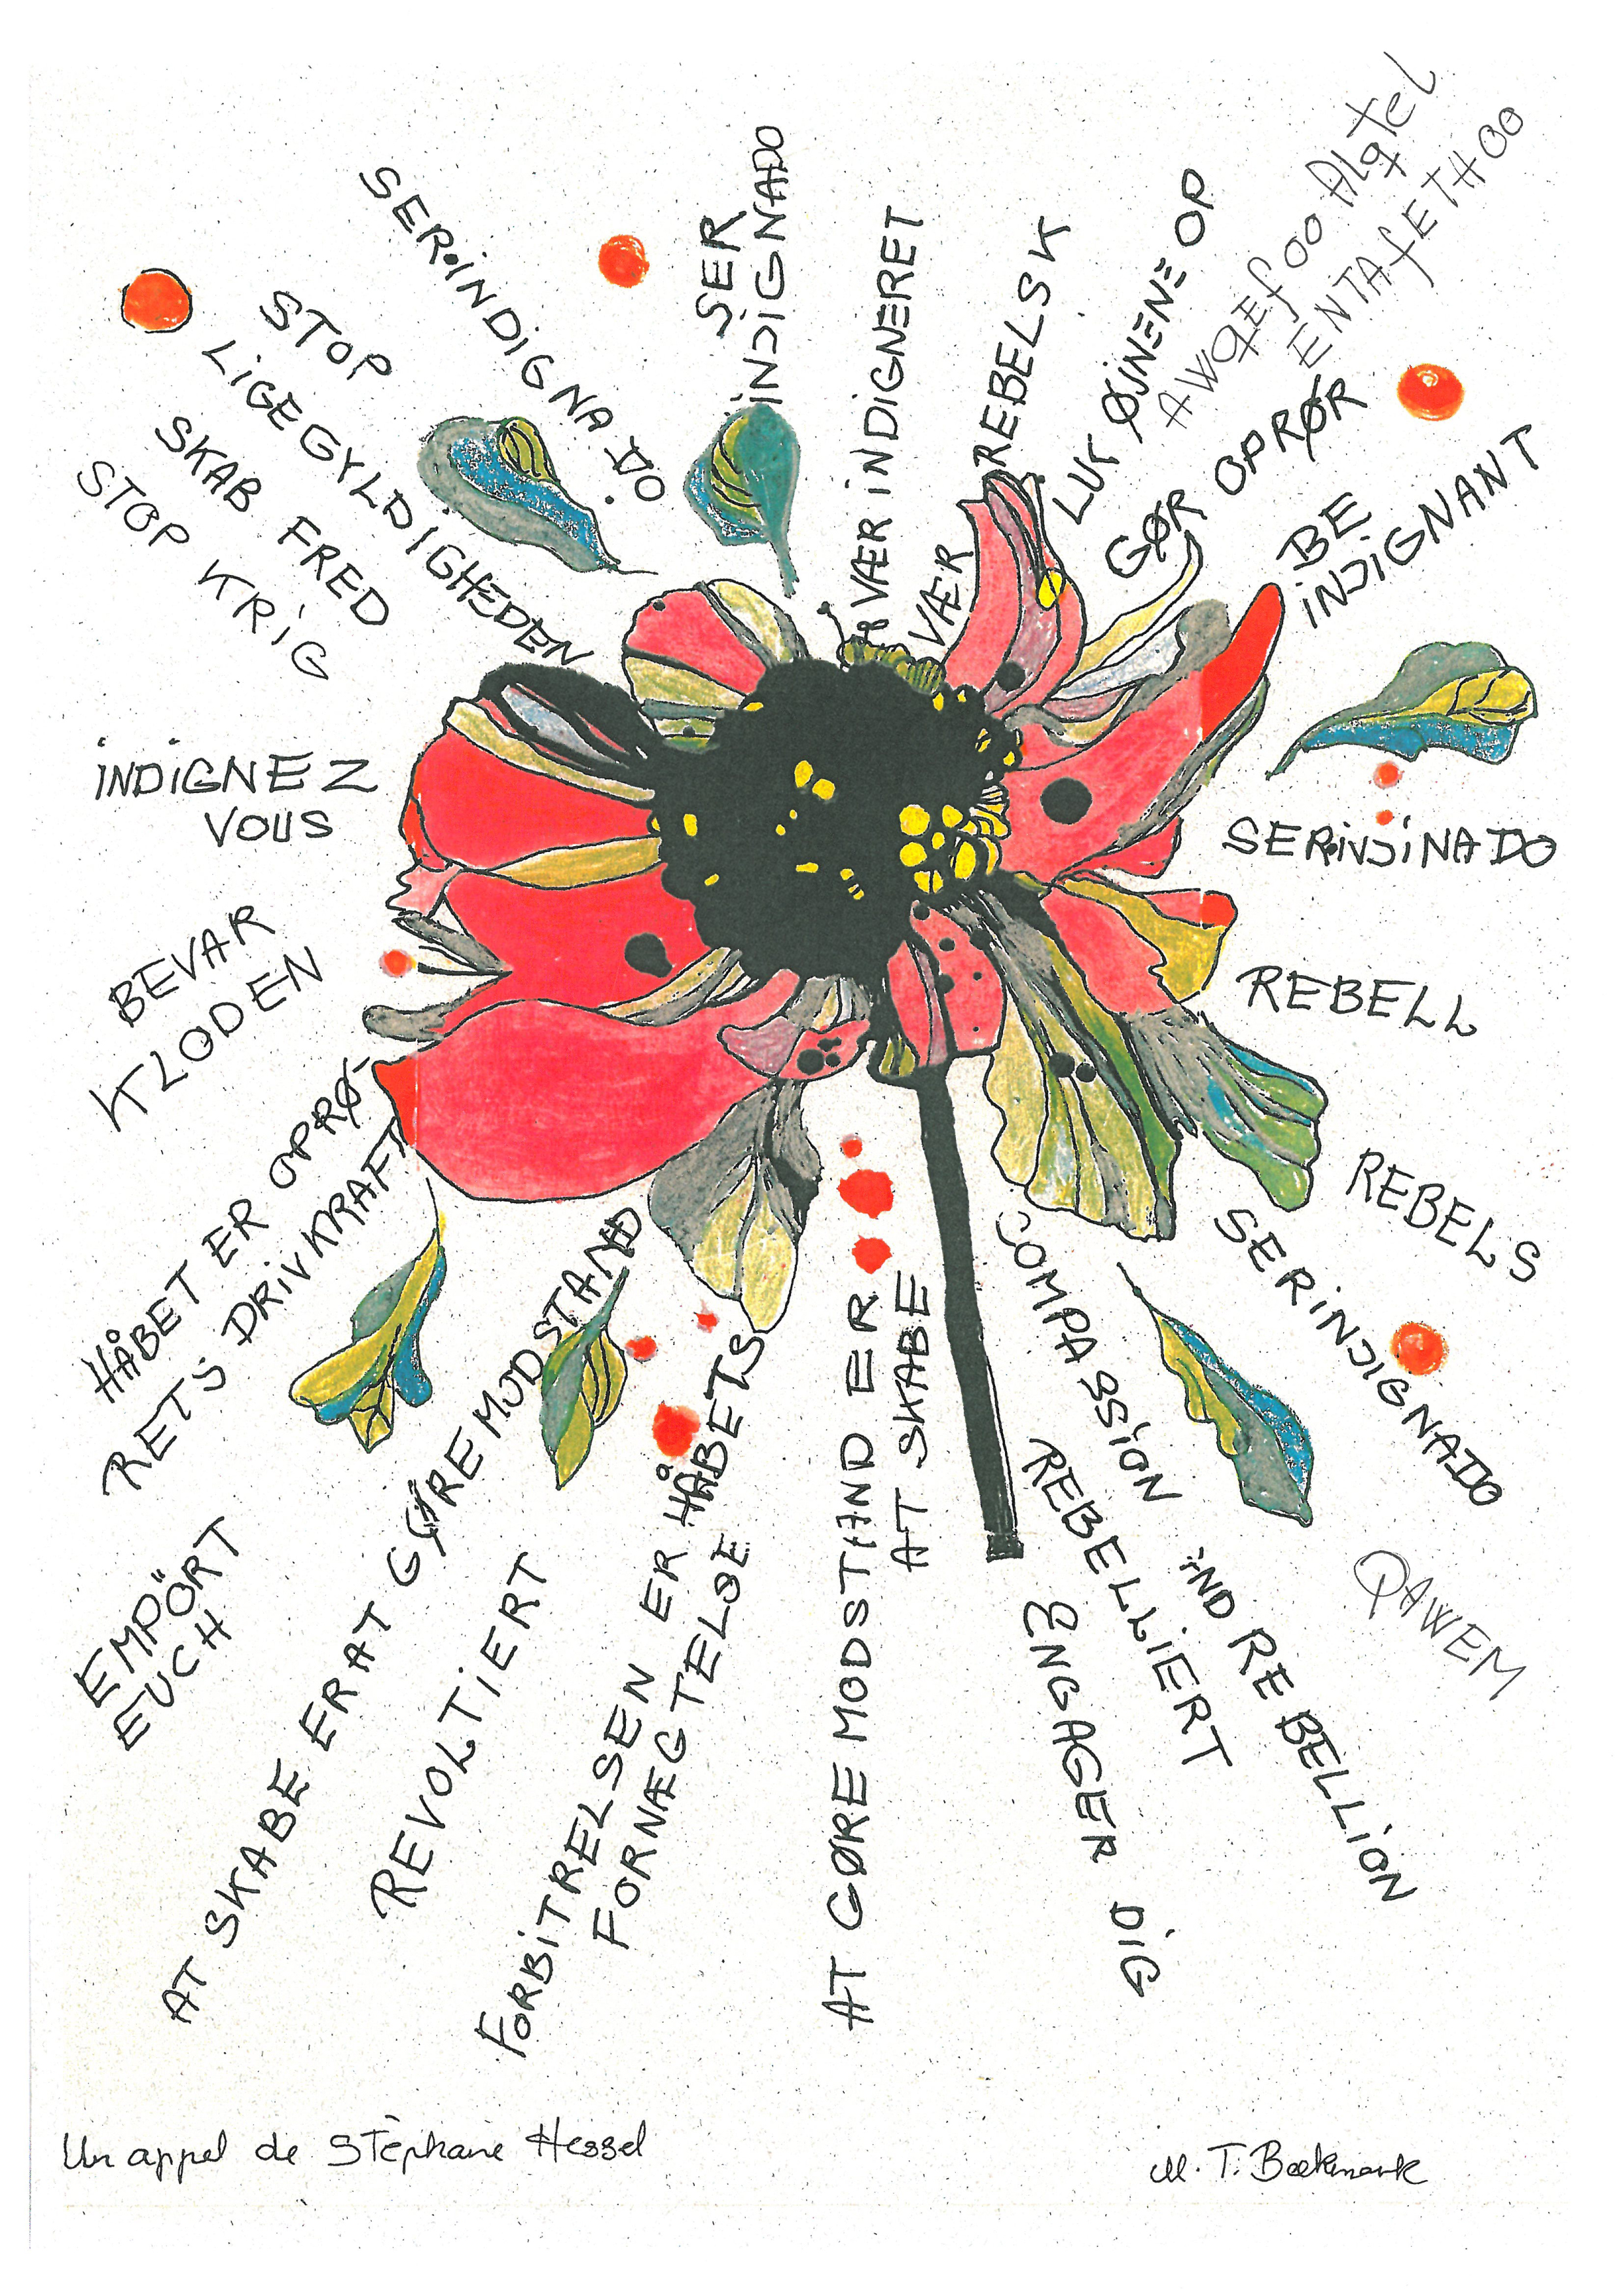 SER INDIGNADO
SER
INDIGNADO
VÆR INDIGNERET
VÆR REBELSK
LUK ØJNENE OP
AWQEFOO Alqtel
ENTAFETHOO
GØR OPRØR
BE
INDIGNANT
SER INJINADO
REBELL
REBELS
SER INDIGNADO
QAWEM
COMPASSION AND REBELLION
REBELLIERT
ENGAGER DIG
AT GØRE MODSTAND ER
AT SKABE
FORBITRELSEN ER HÅBETS
FORNÆGTELSE
REVOLTIERT
AT SKABE ER AT GØRE MODSTAND
EMPÖRT
EUCH
HÅBET ER OPRØ-
RETS DRIVKRAFT
BEVAR
KLODEN
INDIGNEZ
VOUS
STOP KRIG
SKAB FRED
STOP
LIGEGYLDIGHEDEN
Un appel de Stéphane Hessel
M. T. Bækmark